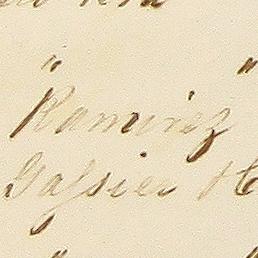 " "
Ramirez
Gassier H
" "